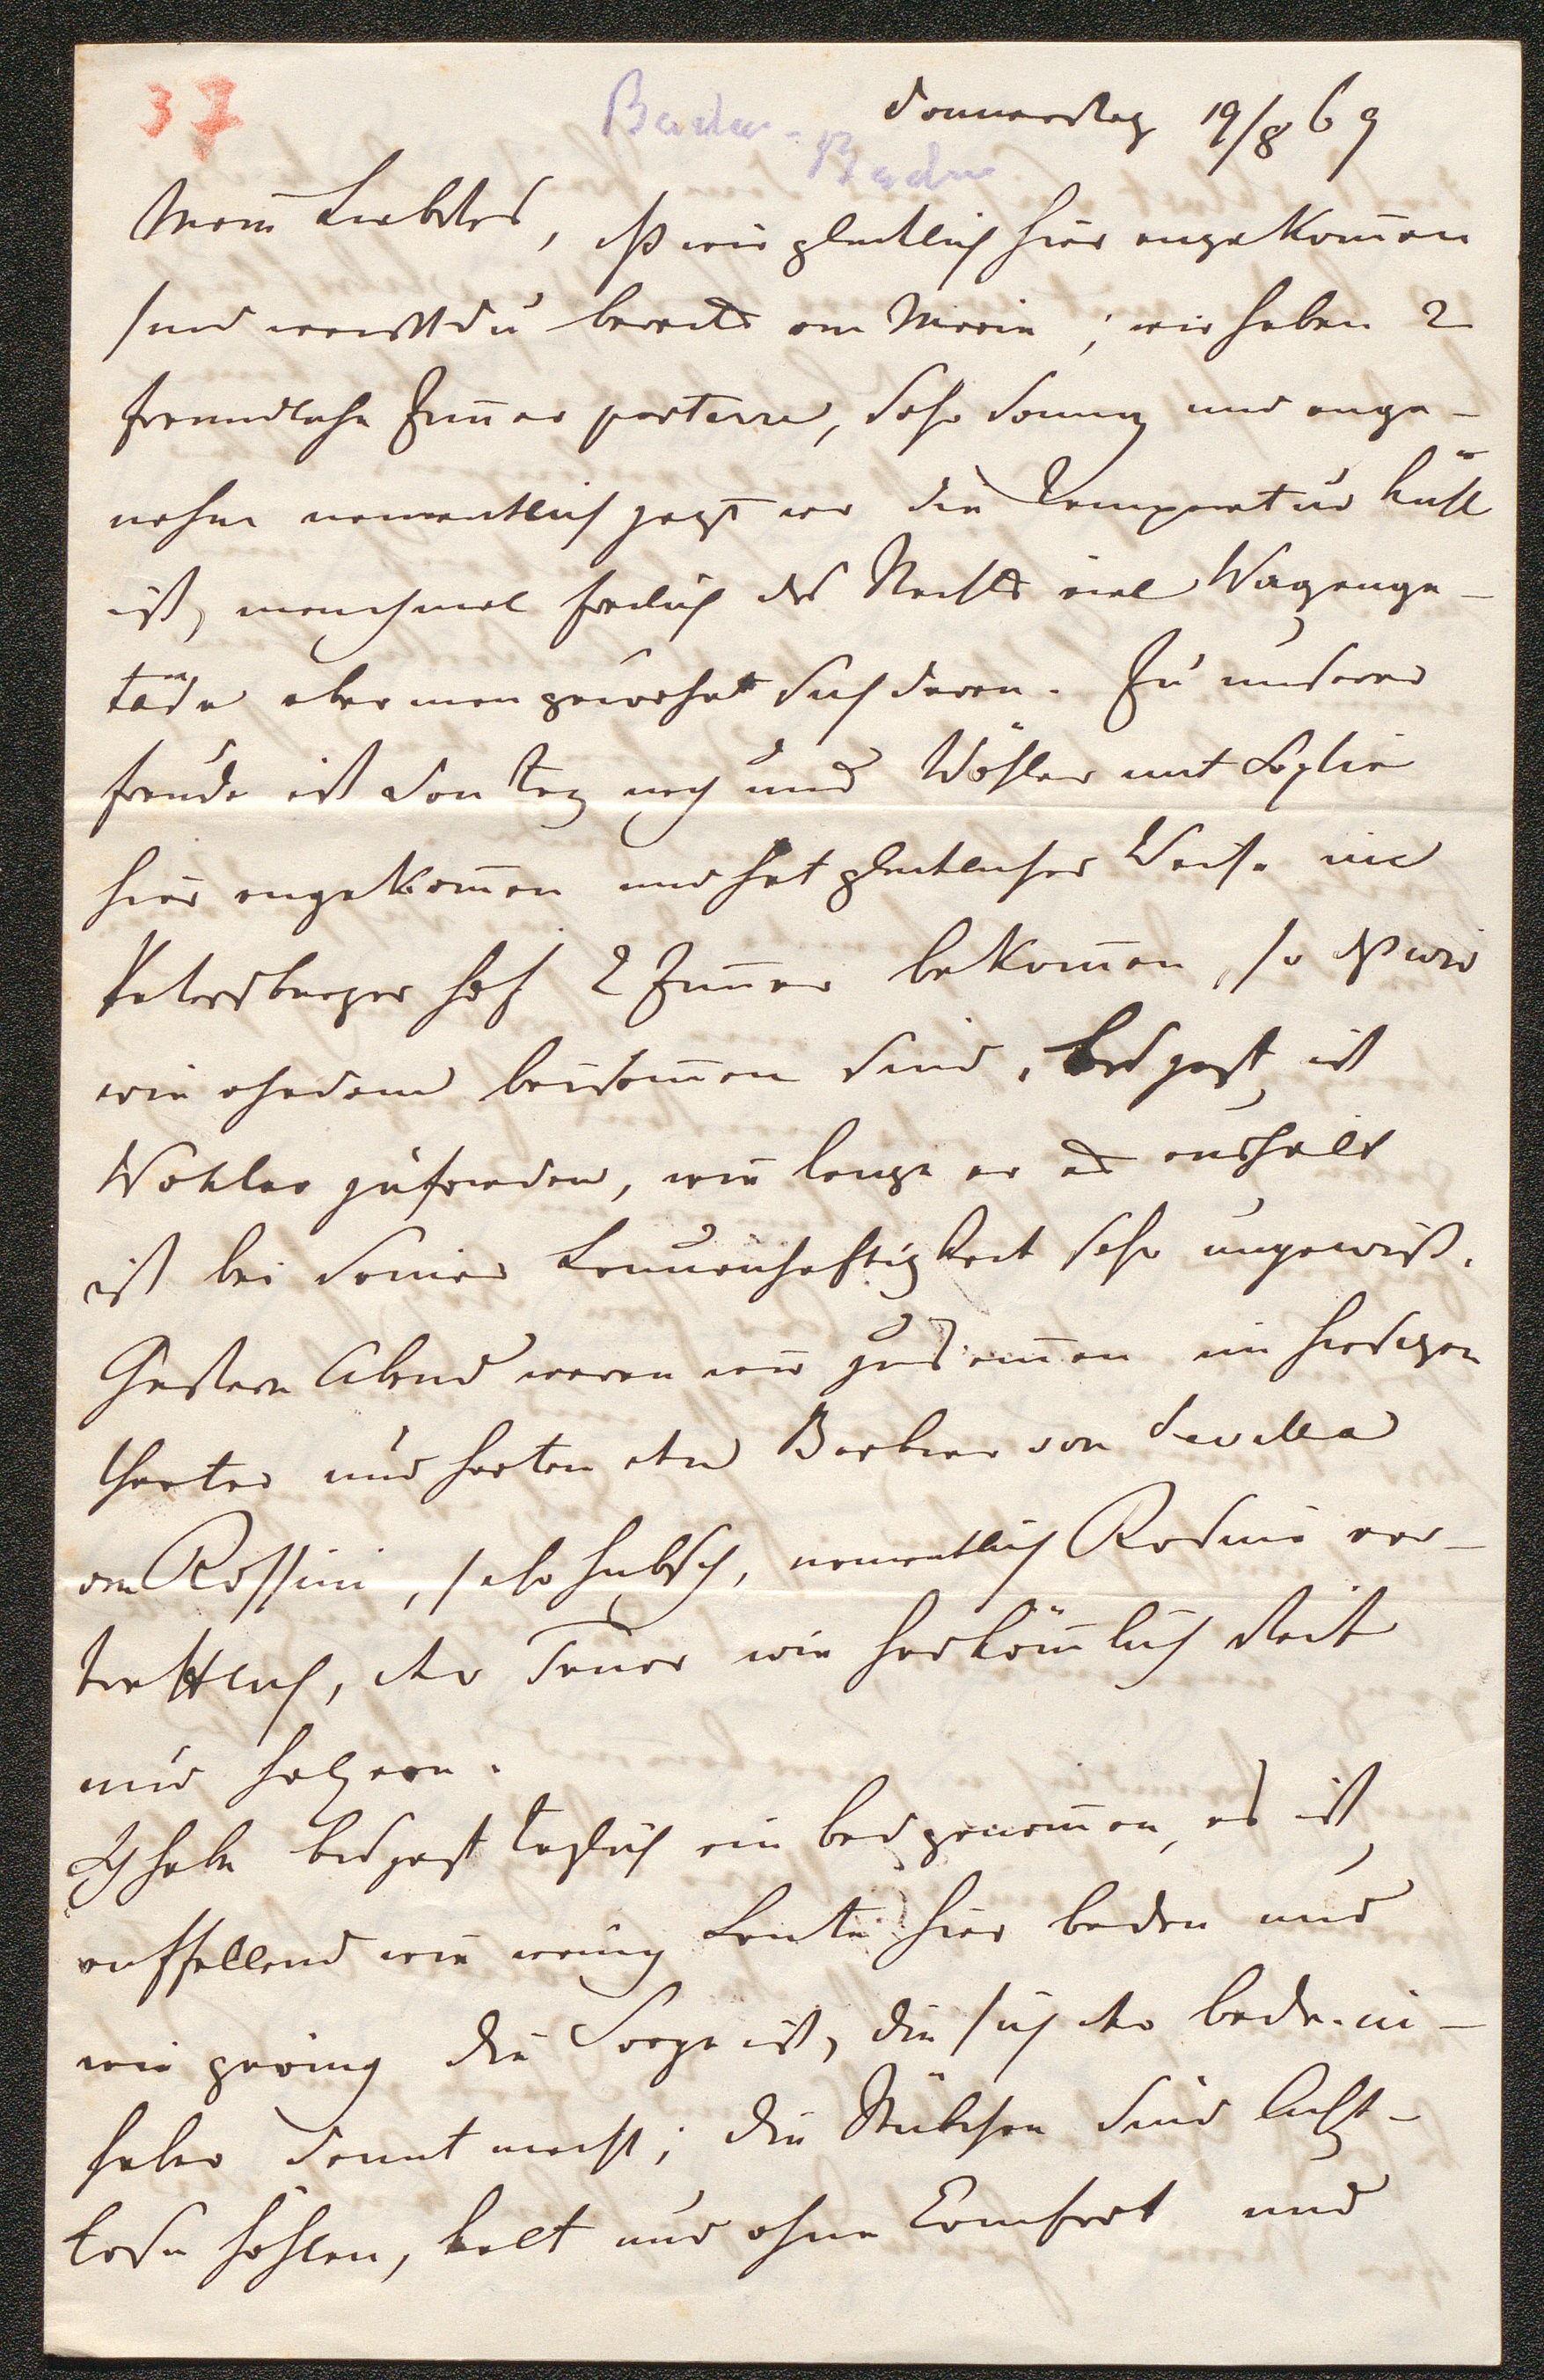 37
Baden-
Baden
Donnerstag 19/8 69
Mein Liebstes, dß wir glücklich hier angekom̄en
sind weisst du bereits von Marie; wir haben 2
freundliche Zim̄er parterre, sehr sonnig und ange-
nehm namentlich jezt wo die Temperatur kühl
ist, manchmal freilich des Nachts viel Wagenge-
töse aber man gewöhnt sich daran. Zu unserer
Freude ist den Tag nach uns Wöhler mit Sophie
hier angekom̄en und hat glücklicher Weise im
Petersburger Hof 2 Zim̄er bekom̄en, so dß wir
wie ehedem beisam̄en sind. Bis jezt ist
Wöhler zufrieden, wie lange er es aushält
ist bei seiner Launenhaftigkeit sehr ungewiß.
Gestern Abend waren wir zusam̄en im hiesigen
Theater und hörten den Barbier von Sevilla
von Rossini, sehr hübsch, namentlich Rosine vor-
trefflich, der Tenor wie herköm̄lich steif
und hölzern.
Ich habe bis jezt täglich ein Bad genom̄en, es ist
auffallend wie wenig Leute hier baden und
wie gering die Sorge ist, die sich der Bade-in-
haber damit macht; die Stübchen sind licht-
lose Höhlen, kalt und ohne Comfort und